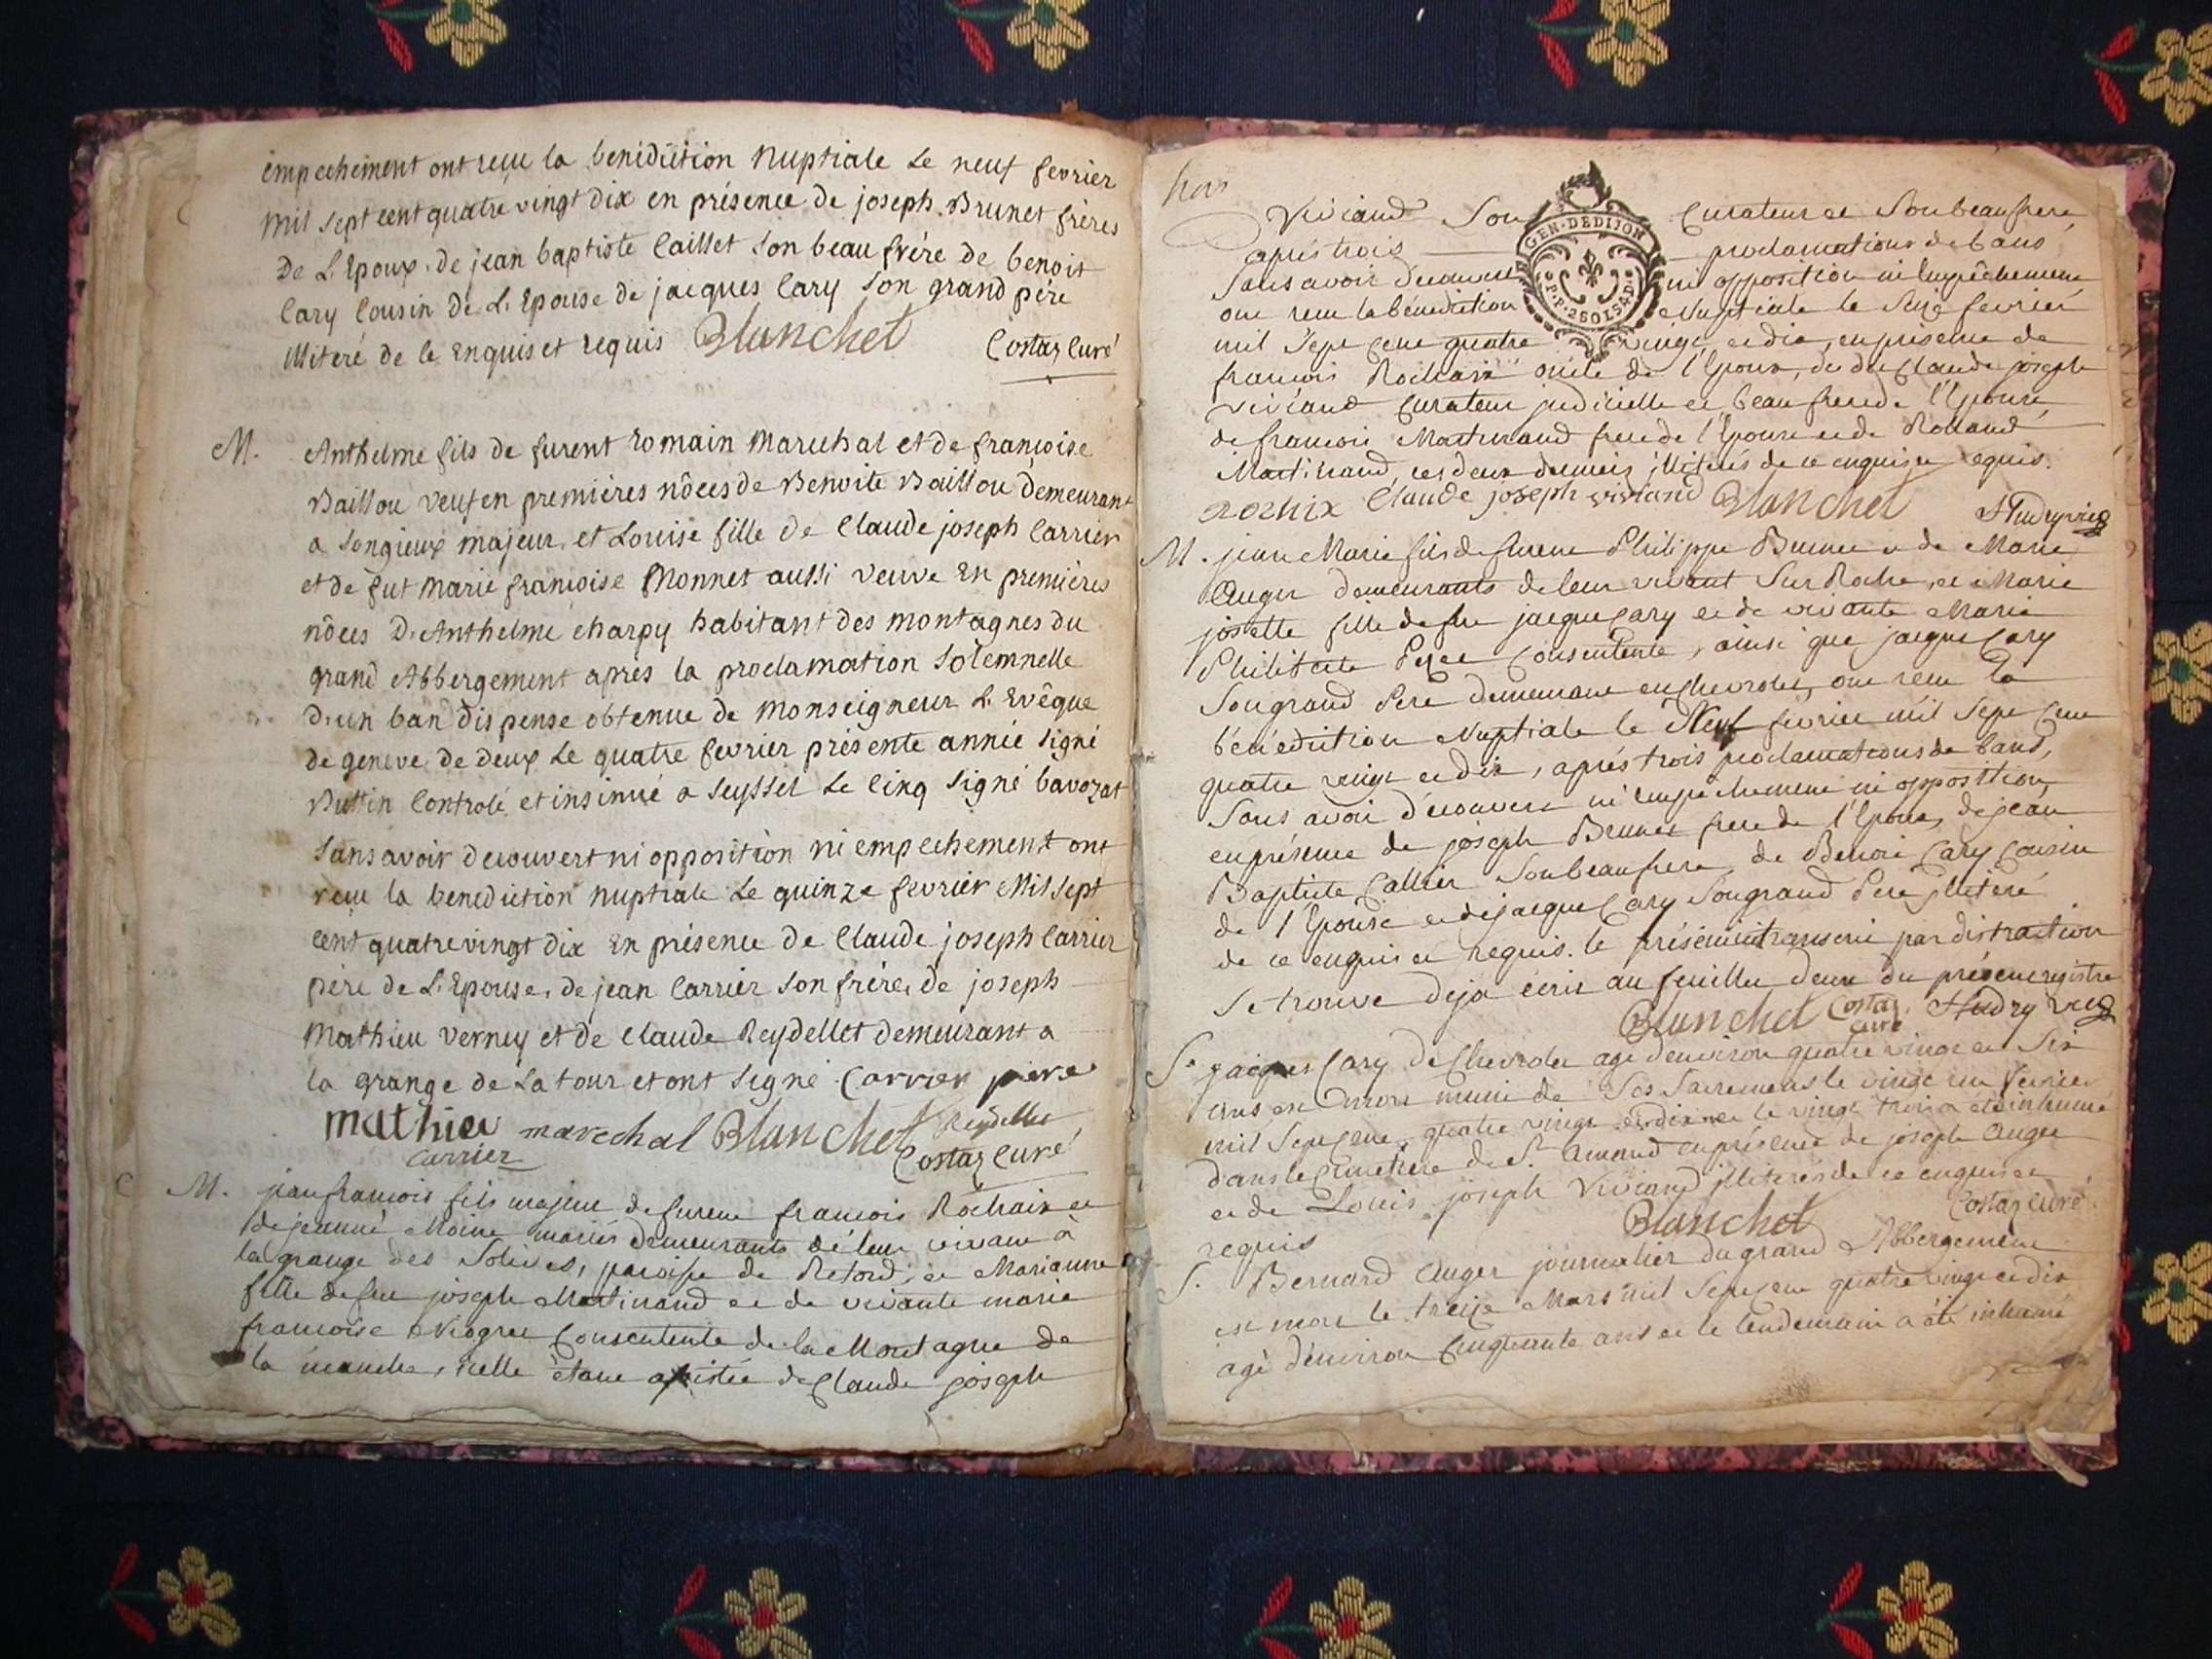 empechement ont recu la benidiction nuptiale Le neuf fevrier
mil sept cent quatre vingt dix en présence de joseph Brunet frères
De L'Epoux. de jean baptiste Caillet son beau frère de benoit
Cary Cousin de L'Epouse de jacques Cary son grand père
illiteré de ce Enquis et requis Blanchet Costaz Curé
M. Anthelme fils de furent romain Marechal et de francoise
Baillou veuf en premières nôces de Benoite Baillou demeurant
a Songieux majeur, et Louise fille de Claude joseph Carrier
et de fut Marie francoise Monnet aussi veuve En premières
nôces D'Anthelme charpy habitant des montagnes du
grand Abbergement après la proclamation Solemnelle
D'un ban dispense obtenue de Monseigneur L'Evêque
de geneve de deux Le quatre fevrier présente année signé
Buttin Controlé et insinué a Seyssel Le Cinq signé bavozat
Sans avoir decouvert ni opposition ni empechement ont
recu la benediction nuptiale Le quinze fevrier Mil sept
cent quatre vingt dix En présence de Claude joseph Carrier
père de L'Epouse, de jean Carrier son frère, de joseph
Mathieu Verney et de Claude Reydellet demeurant a
la grange de La tour et ont Signé Carrier père
mathieu marechal Blanchet Reydellet
carrier Costaz Curé
M. jean francois fils majeur de furent francois Rochaix et
de jeanne Moine mariés demeurants de leur vivant à
la grange des Solives, paroisse de Retord, et Marianne
fille de feu joseph Martinand et de vivante marie
francoise consentente de la Montagne de
la manche, icelle étant assistée de Claude joseph
Viviand Son Curateur et Son beau frere,
GEN·DEDIJON
après trois proclamations de bans
Sans avoir decouvert ni opposition ni Empêchement
P.P. 2 SOLS 4 D.
ont recu la bénédiction Nuptiale le Seize fevrier
mil Sept Cent quatre vingt et dix, en présence de
francois Rochaix oncle de l'Epoux, de dit Claude joseph
Viviand Curateur judicielle et beau frere de l'Epouse,
de francois Martinand frere de l'Epouse et de Rolland
Martinand, ces deux derniers illiterés de ce enquis et requis.
rochix Claude joseph viviand Blanchet Hudry vic
M. jean Marie fils de furent Philippe Brunet et de Marie
Auger demeurants de leur vivant Sur Roche, et Marie
josette fille de feu jacque Cary et de vivante Marie
Philiberte consentente, ainsi que jacque Cary
Son grand Pere demeurant en Chevrolet, ont recu la
bénédiction Nuptiale le Neuf fevrier mil Sept Cent
quatre vingt et dix, après trois proclamations de bans,
Sans avoir découvert ni empêchement ni opposition,
en présence de joseph Brunet frere de l'Epoux, de jean
Baptiste Callier Son beau frere, de Benoit Cary Cousin
de l'Epouse et de jacque Cary Son grand Pere illiteré
de ce enquis et requis. le présent transcrit par distraction
Se trouve deja écrit au feuillet deux du présent registre
Blanchet Costaz curé Hudry vic
S. jacques Cary de Chevrolet agé d'environ quatre vingt et Six
ans est mort muni de Ses Sacrements le vingt un fevrier
mil Sept Cent quatre vingt et dix et le vingt trois a été inhumé
dans le Cimetiere de St. Amand en présence de joseph Auger
et de Louis joseph Viviand illiterés de ce enquis et
requis Blanchet Costaz Curé
S. Bernard Auger journalier du grand Abbergement
est mort le treize Mars mil Sept Cent quatre vingt et dix
agé d'environ Cinquante ans et le lendemain a été inhumé